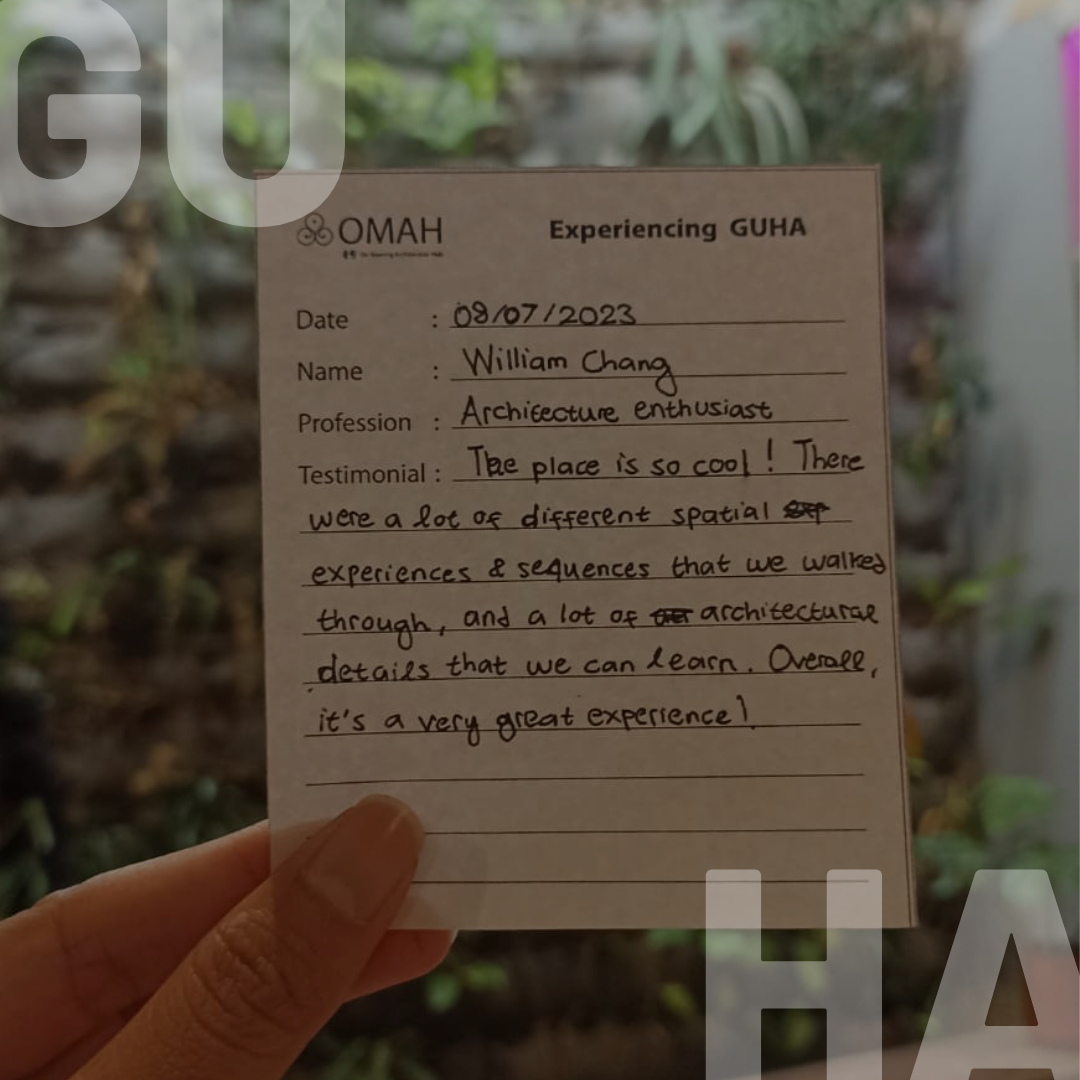 GU
OMAH
Experiencing GUHA
Date : 08/07/2023
Name : William Chang
Profession : Architecture enthusiast
Testimonial : The place is so cool! There
were a lot of different spatial
experiences & sequences that we walked
through, and a lot of architectural
details that we can learn. Overall,
it's a very great experience!
HA